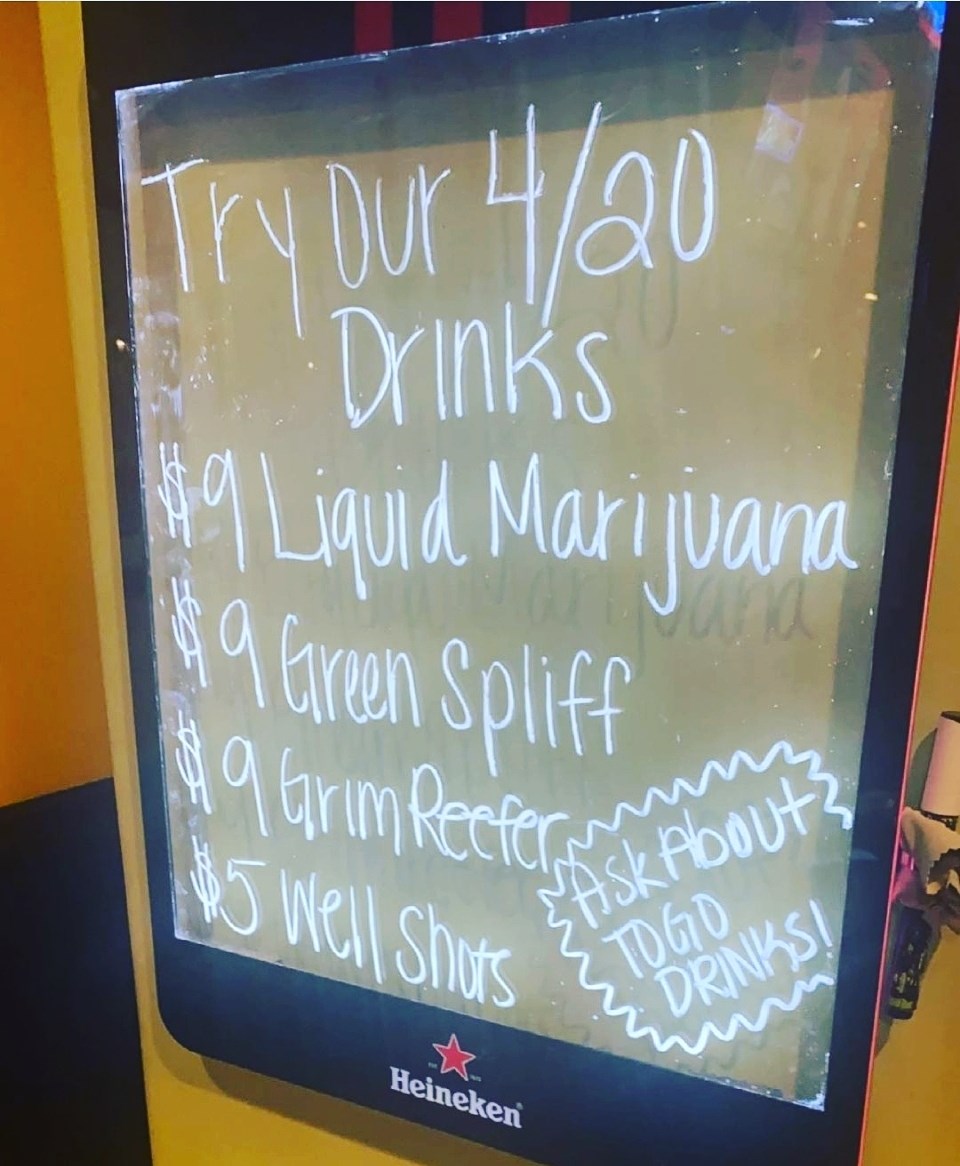 Try Our 4/20
Drinks
$9 Liquid Marijuana
$9 Green Spliff
$9 Grim Reefer
$5 Well Shots
Ask About
TO GO
DRINKS!
Heineken